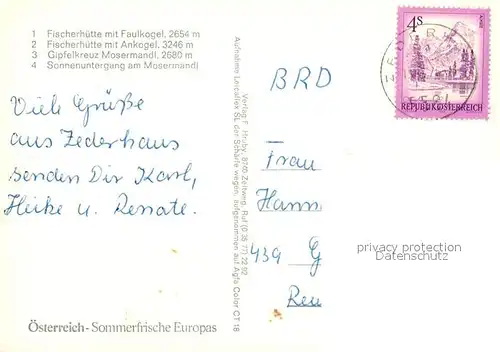 1 Fischerhütte mit Faulkogel, 2654 m
2 Fischerhütte mit Ankogel, 3246 m
3 Gipfelkreuz Mosermandl, 2680 m
4 Sonnenuntergang am Mosermandl
Viele Grüße
aus Zederhaus
senden Dir Karl,
Heike u. Renate.
Österreich - Sommerfrische Europas
Verlag F. Hruby, 8740 Zeltweg, Ruf (0 35 77) 22 92
Aufnahme Leicaflex SL, der Schärfe wegen, aufgenommen auf Agfa Color CT 18
4s
REPUBLIK ÖSTERREICH
BRD
Frau
Hann
439 G
Reu
privacy protection
oldthing.de